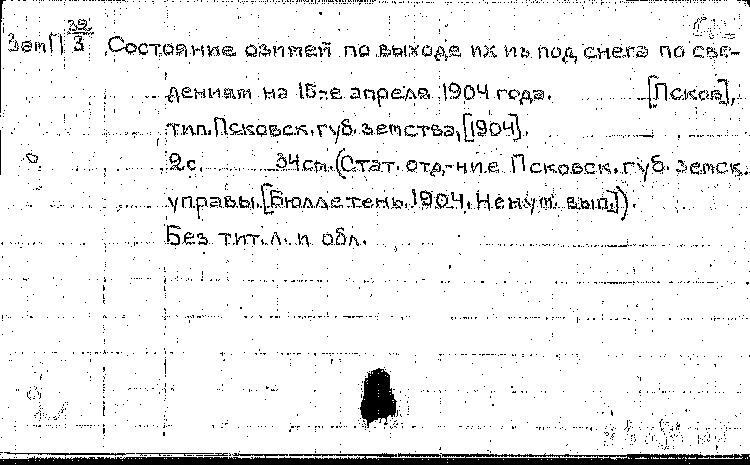 ЗемП 39/3 Состояние озимей по выходе их из под снега по све-
дениям на 15-е апреля 1904 года. [Псков],
тип. Псковск. губ. земства, [1904].
2 с. 34 см. (Стат. отд-ние Псковск. губ. земск.
управы. [Бюллетень. 1904. Ненум. вып.]).
Без тит. л. и обл.